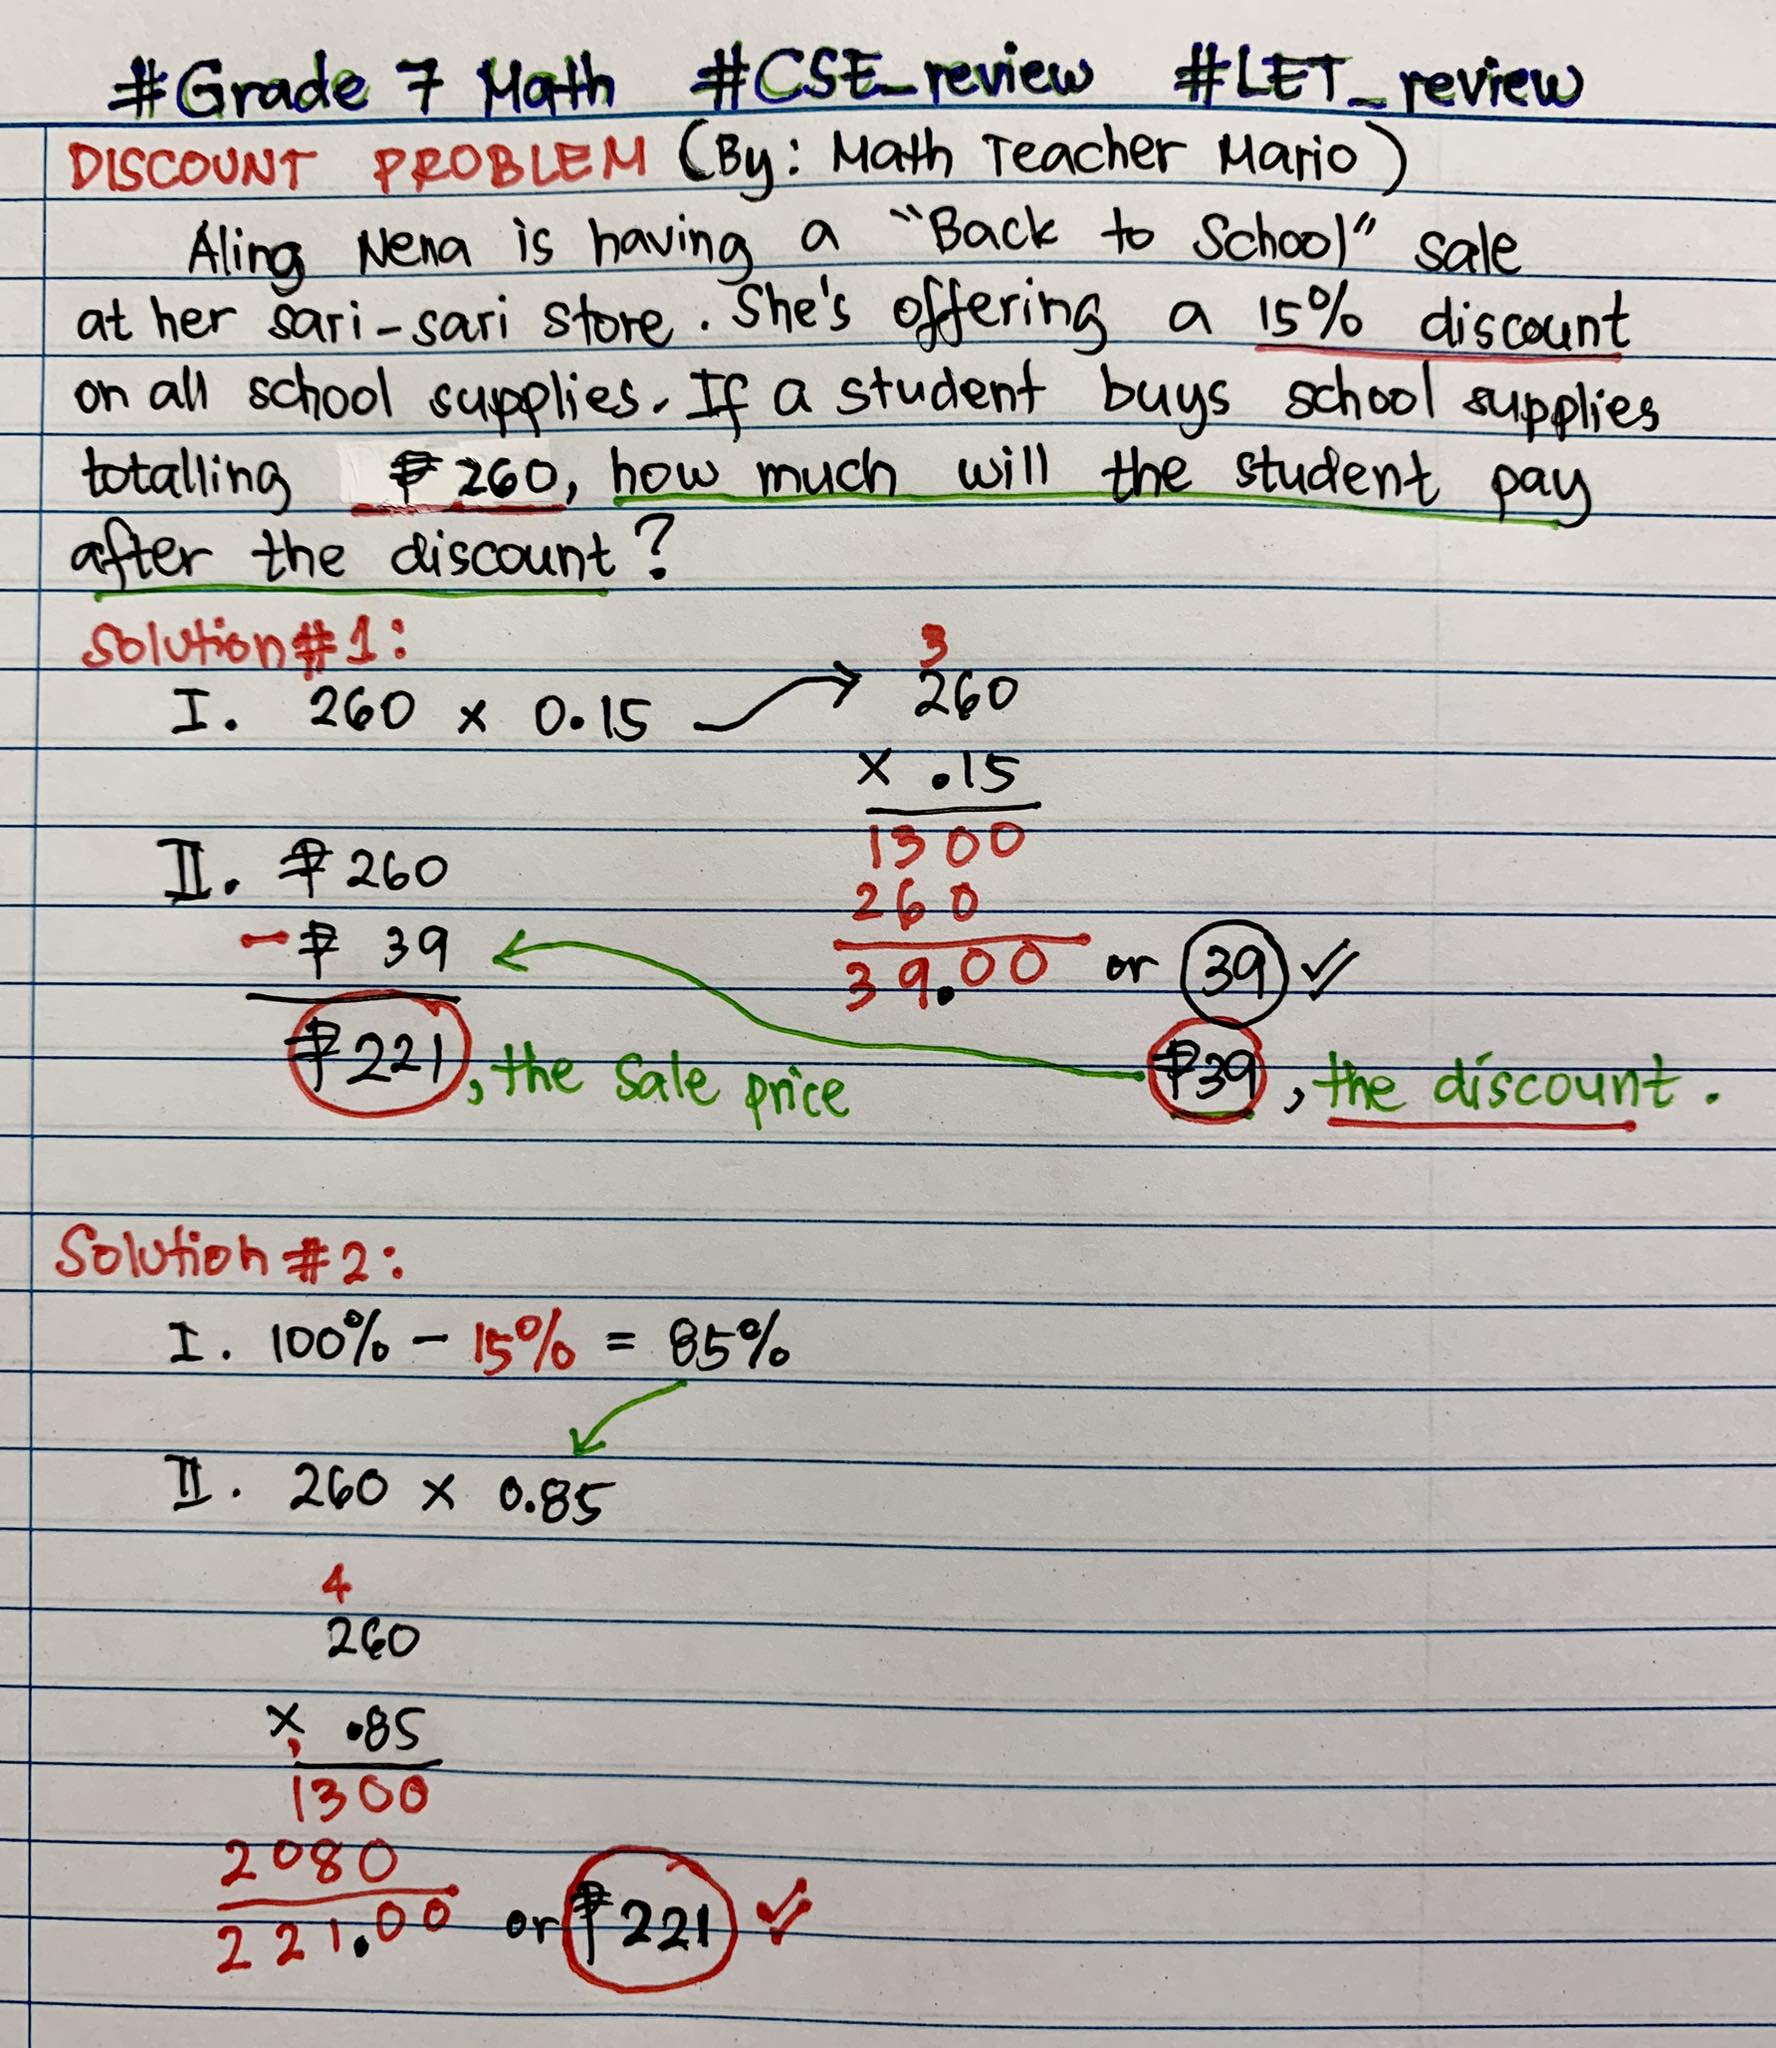 #Grade 7 Math #CSE_review #LET_review
DISCOUNT PROBLEM (By: Math Teacher Mario)
Aling Nena is having a "Back to School" sale
at her sari-sari store. She's offering a 15% discount
on all school supplies. If a student buys school supplies
totalling ₱260, how much will the student pay
after the discount?
Solution #1:
I. 260 x 0.15
3
260
x .15
1300
260
39.00 or 39
₱39, the discount.
II. ₱260
-₱ 39
₱221, the sale price
Solution #2:
I. 100% - 15% = 85%
II. 260 x 0.85
4
260
x .85
1300
2080
221.00 or ₱221